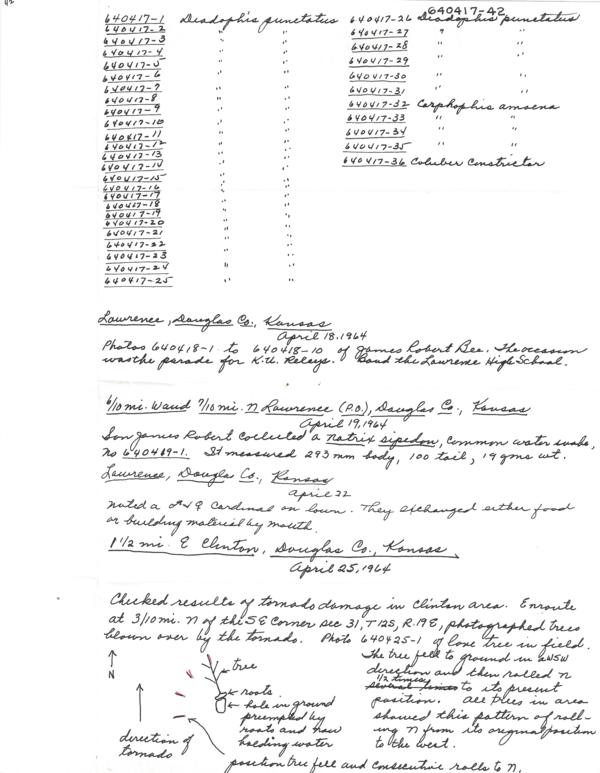 640417-42
640417-1 Diadophis punctatus
640417-2 " "
640417-3 " "
640417-4 " "
640417-5 " "
640417-6 " "
640417-7 " "
640417-8 " "
640417-9 " "
640417-10 " "
640417-11 " "
640417-12 " "
640417-13 " "
640417-14 " "
640417-15 " "
640417-16 " "
640417-17 " "
640417-18 " "
640417-19 " "
640417-20 " "
640417-21 " "
640417-22 " "
640417-23 " "
640417-24 " "
640417-25 " "
640417-26 Diadophis punctatus
640417-27 " "
640417-28 " "
640417-29 " "
640417-30 " "
640417-31 " "
640417-32 Carphophis amoena
640417-33 " "
640417-34 " "
640417-35 " "
640417-36 Coluber constrictor
Lawrence, Douglas Co., Kansas
April 18, 1964
Photos 640418-1 to 640418-10 of James Robert Bee. The occasion
was the parade for K.U. Relays. Band the Lawrence High School.
6/10 mi. W and 7/10 mi. N Lawrence (P.O.), Douglas Co., Kansas
April 19, 1964
Son James Robert collected a natrix sipedon, common water snake,
no 640419-1. It measured 293 mm body, 100 tail, 19 gms wt.
Lawrence, Douglas Co., Kansas
April 22
Noted a ♂ + ♀ Cardinal on lawn. They exchanged either food
or building material by mouth.
1 1/2 mi. E Clinton, Douglas Co., Kansas
April 25, 1964
Checked results of tornado damage in Clinton area. Enroute
at 3/10 mi. N of the SE Corner sec 31, T12S, R.19E, photographed trees
blown over by the tornado. Photo 640425-1 of lone tree in field.
The tree fell to ground in a WSW
direction and then rolled N
1 1/2 times
several times to its present
position. All trees in area
showed this pattern of roll-
ing N from its original position
to the west.
N
tree
roots
hole in ground
preempted by
roots and now
holding water
direction of
tornado
position tree fell and consecutive rolls to N.